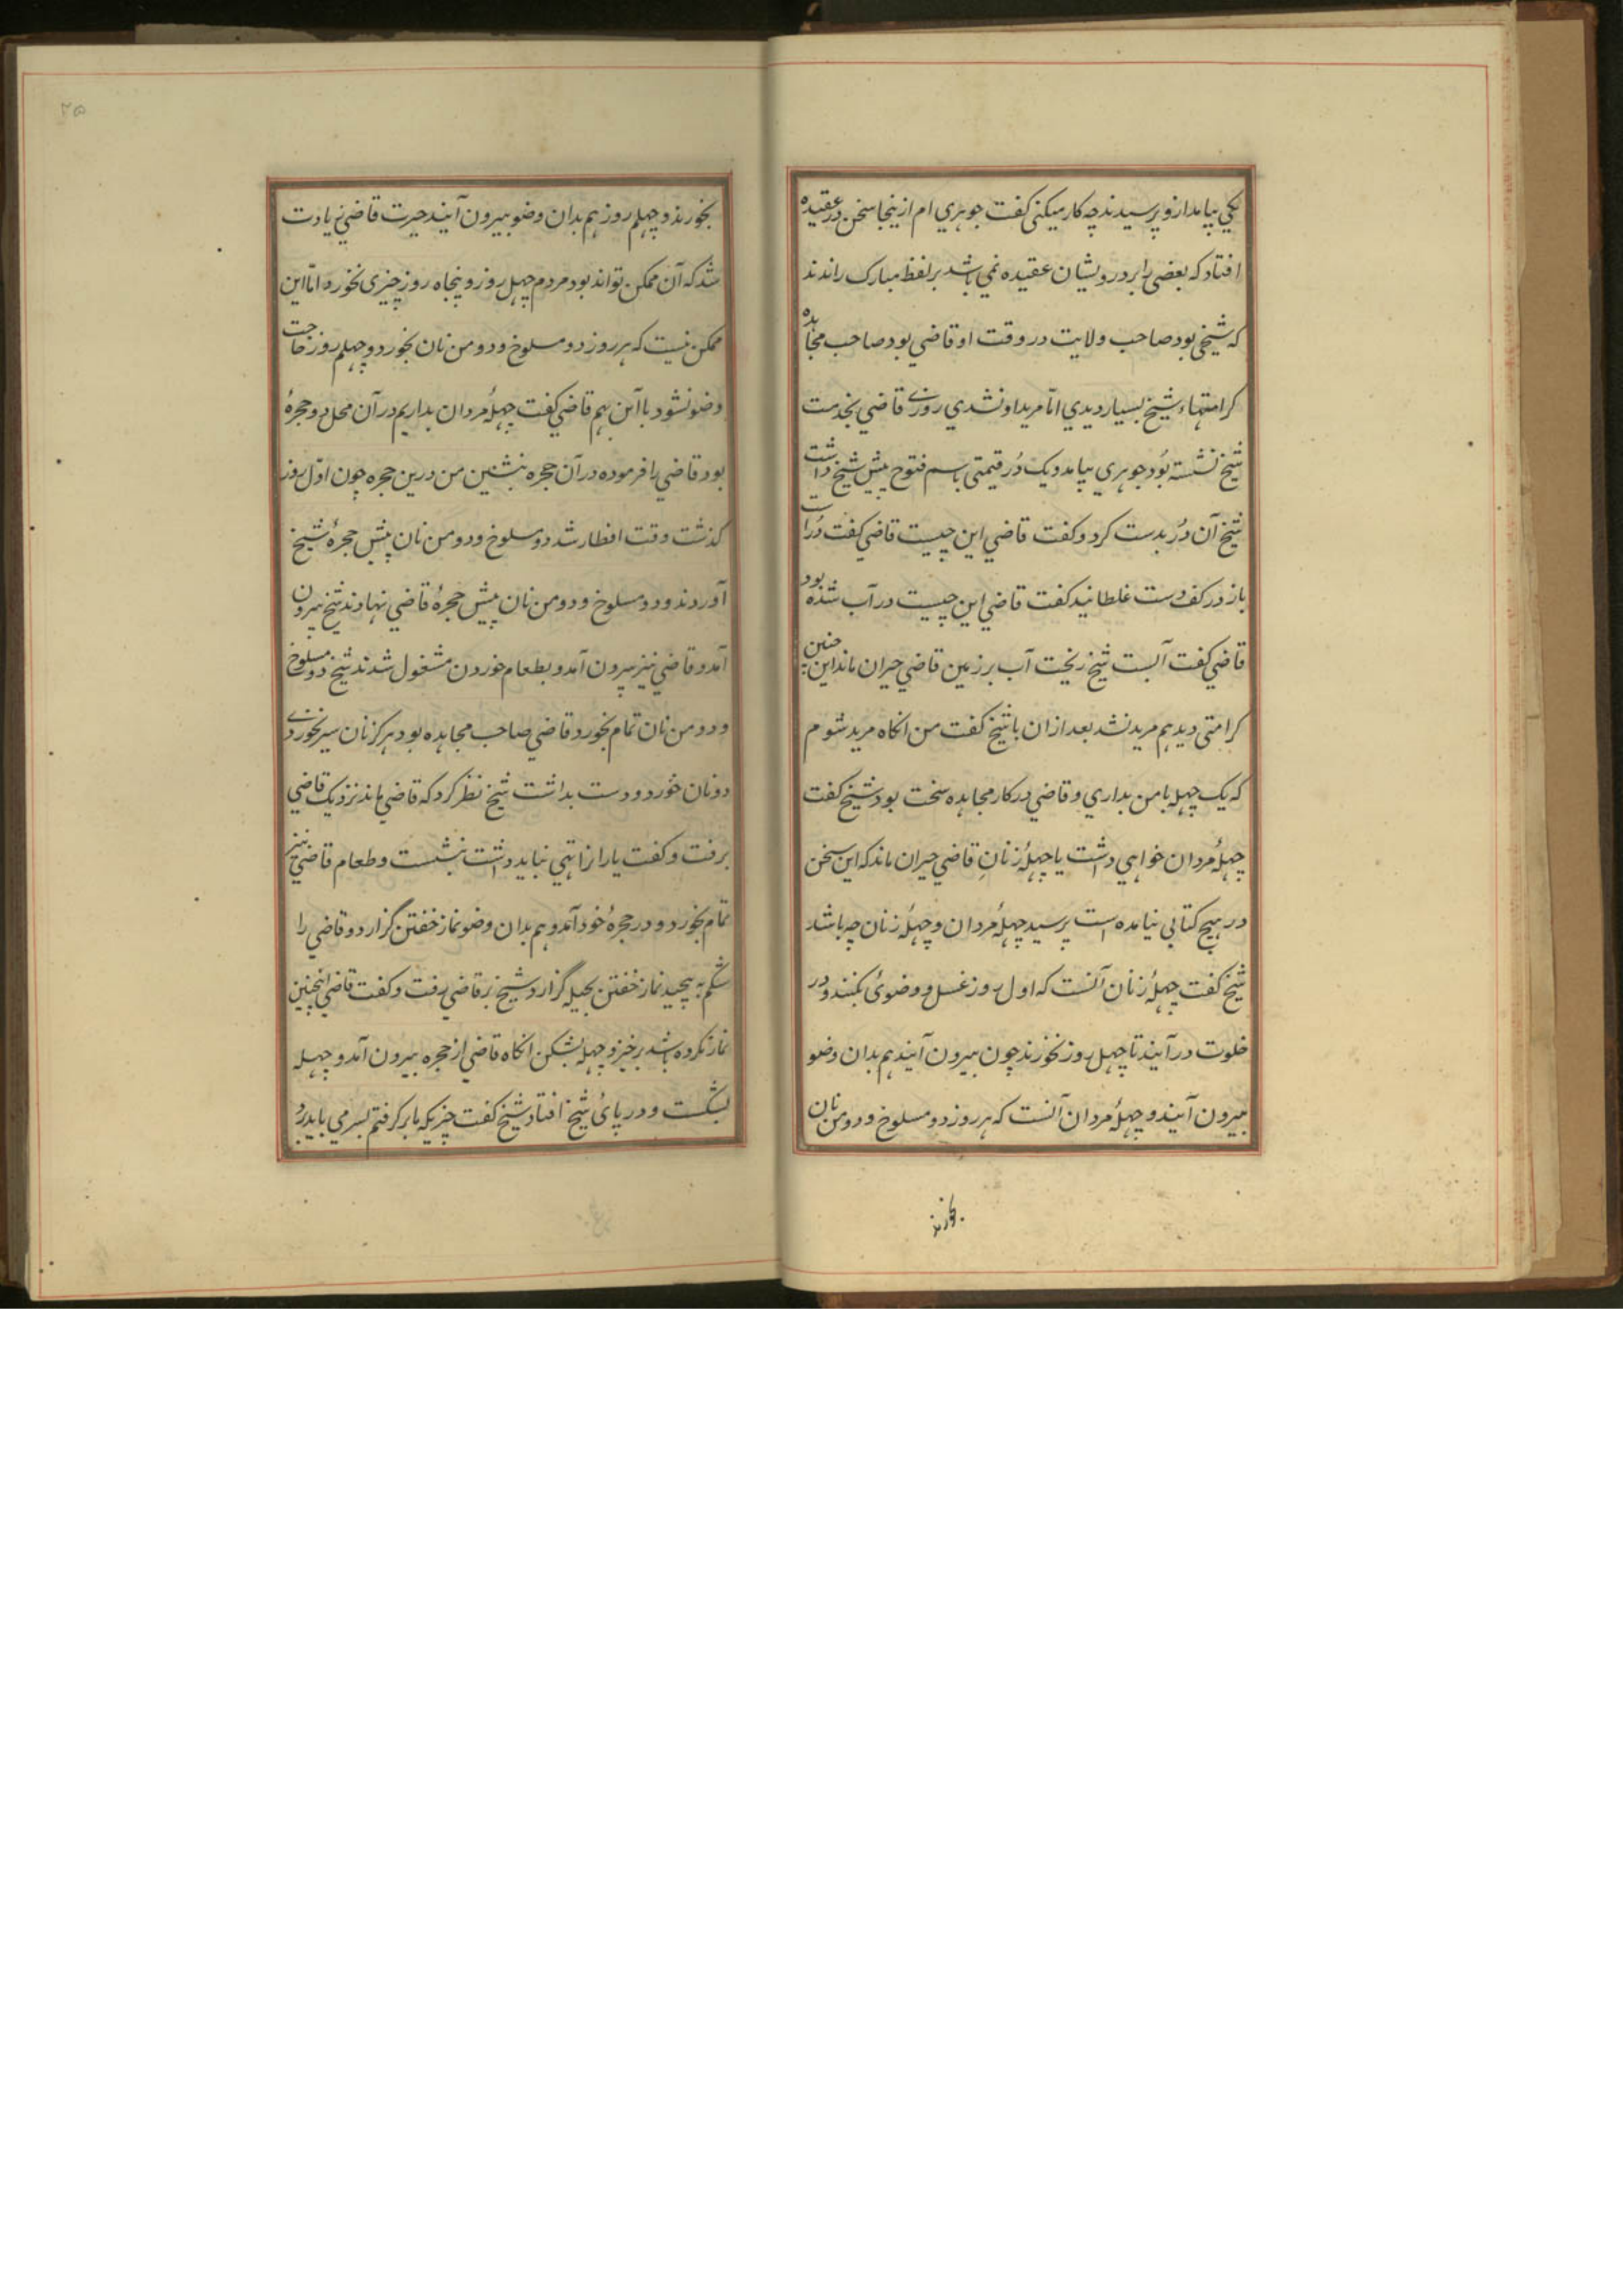 یکی بیامد ازو پرسیدند چه کار میکنی کفت جوهری ام ازینجا سخن در عقیده
افتاد که بعضی را بر درویشان عقیده نمی باشد بر لفظ مبارک راندند
که شیخی بود صاحب ولایت در وقت او قاضی بود صاحب مجاهده
کرامتهاء شیخ بسیار دیدی اما مرید او نشدی روزی قاضی بخدمت
شیخ نشسته بود جوهری بیامد و یک دُر قیمتی باسم فتوح پیش شیخ داشت
شیخ آن دُر بدست کرد و کفت قاضی این چیست قاضی کفت دُر است
باز در کف دست غلطانید کفت قاضی این چیست در آب شده بود
قاضی کفت آبست شیخ ریخت آب بر زمین قاضی حیران ماند این چنین
کرامتی دید هم مرید نشد بعد ازان با شیخ کفت من انکاه مرید شوم
که یک چهله با من بداری و قاضی در کار مجاهده سخت بود شیخ کفت
چهلهٔ مردان خواهی داشت یا چهلهٔ زنانِ قاضی حیران ماند که این سخن
در هیچ کتابی نیامده است پرسید چهلهٔ مردان و چهلهٔ زنان چه باشد
شیخ کفت چهلهٔ زنان آنست که اول روز غسل و وضوئ بکنند و در
خلوت در آیند تا چهل روز نخورند چون بیرون آیند هم بدان وضو
بیرون آیند و چهلهٔ مردان آنست که هر روز دو مسلوخ و دو من نان
بخورند
۲۵
بخورند و چهلم روز هم بدان وضو بیرون آیند حیرت قاضی زیادت
شد که آن ممکن تواند بود مردم چهل روز و پنجاه روز چیزی نخورد اما این
ممکن نیست که هر روز دو مسلوخ و دو من نان بخورد و چهلم روز حاجت
وضو نشود با این هم قاضی کفت چهلهٔ مردان بداریم در آن محل دو حجرهٔ
بود قاضی را فرموده در آن حجره بنشین من درین حجره چون اول روز
کذشت وقت افطار شد دو مسلوخ و دو من نان پیش حجرهٔ شیخ
آوردند و دو مسلوخ و دو من نان پیش حجرهٔ قاضی نهادند شیخ بیرون
آمد و قاضی نیز بیرون آمد و بطعام خوردن مشغول شدند شیخ دو مسلوخ
و دو من نان تمام بخورد و قاضی صاحب مجاهده بود هرکز نان سیر نخوردی
دو نان خورد و دست بداشت شیخ نظر کرد که قاضی ماند نزدیک قاضی
برفت و کفت یار را تهی نباید داشت بنشست و طعام قاضی نیز
تمام بخورد و در حجرهٔ خود آمد و هم بدان وضو نماز خفتن گزارد و قاضی را
شکم به پیچید نماز خفتن بحیله گزارد شیخ بر قاضی رفت و کفت قاضی اینچنین
نماز نکرده باشد برخیز و چهله بشکن انکاه قاضی از حجره بیرون آمد و چهله
بشکست و در پائ شیخ افتاد شیخ کفت چیزیکه بابر کرفتم بسر می باید برد